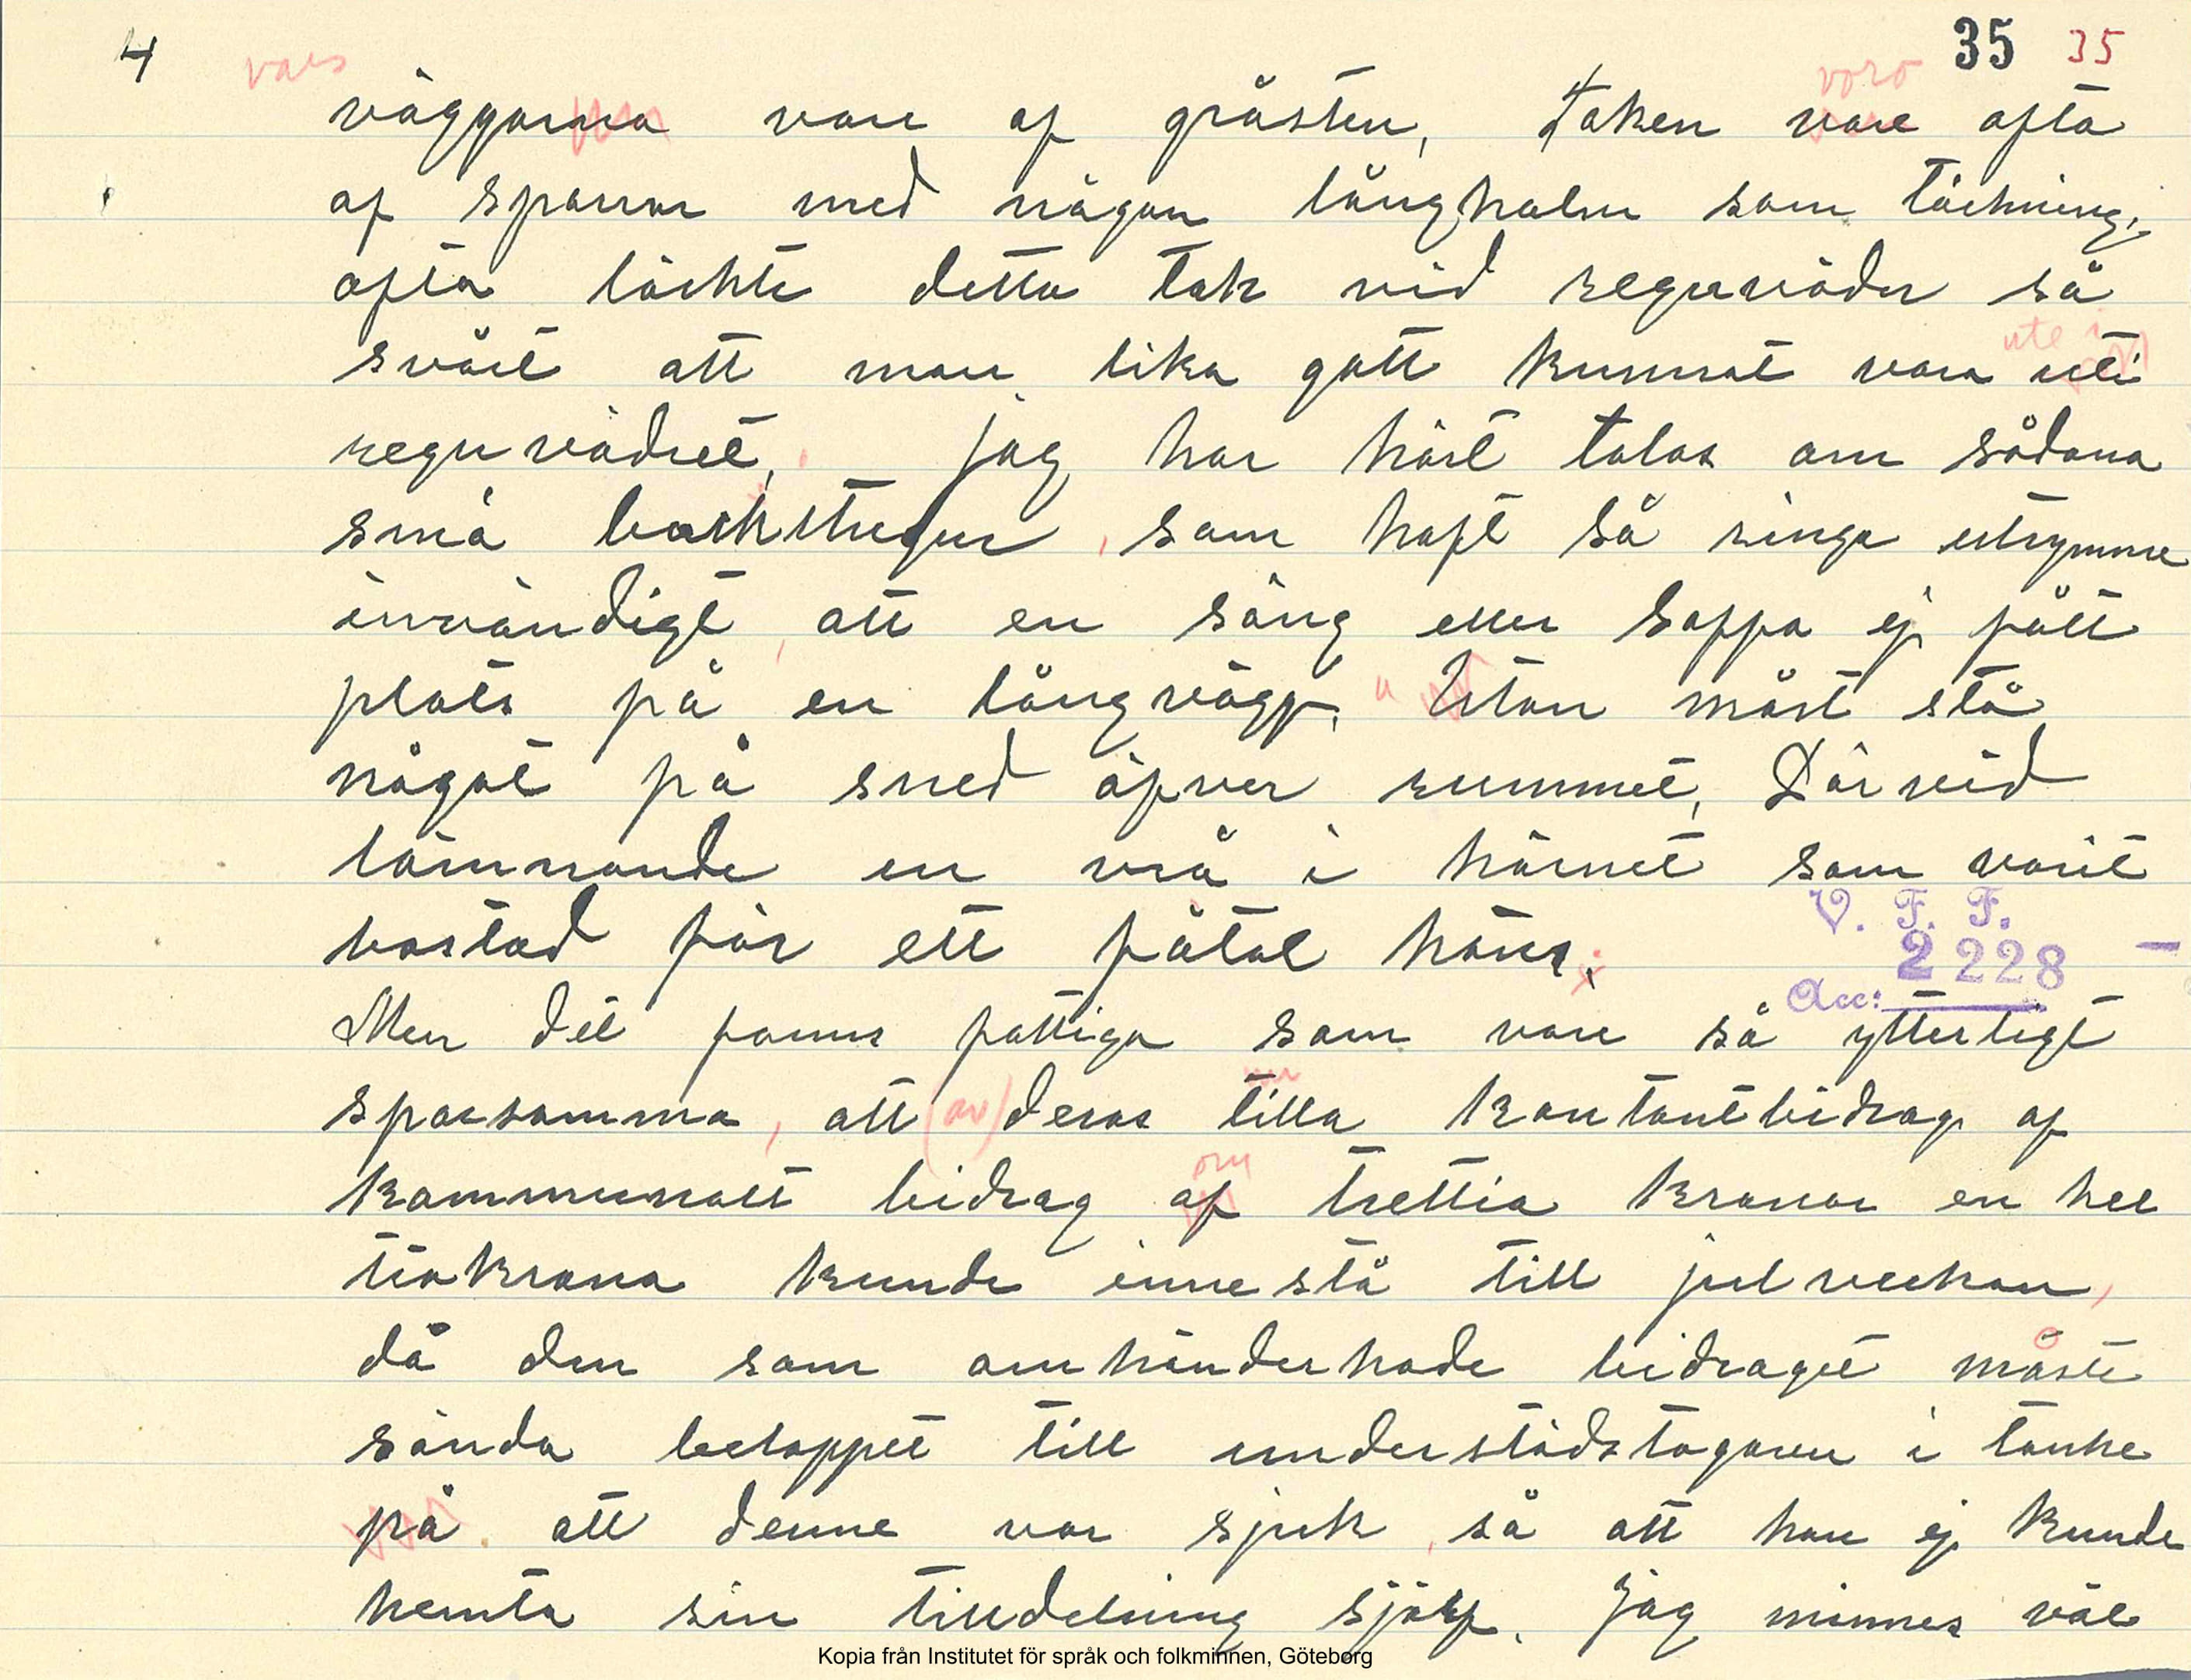 4 35 35
vars voro
väggarna vare af gråsten, taken vare ofta
af sparrar med någon långhalm som täckning,
ofta läckte detta tak vid regnväder så
ute i
svårt att man lika gott kunnat vara uti
regnvädret, jag har hört talas om sådana
små backstugur, som haft så ringa utrymme
invändigt, att en säng eller soffa ej fått
plats på en långvägg, u Utan måst stå
något på sned öfver rummet, Därvid
lämnande en vrå i hörnet som varit
bostad för ett fåtal höns.
V. F. F.
2228 -
Acc:
Men det fanns fattiga som vare så ytterligt
sparsamma, att (av) deras lilla kontantbidrag af
om
kommunalt bidrag af trettio kronor en hel
tiokrona kunde innestå till julveckan,
då den som omhänderhade bidraget måste
sända beloppet till understödstagaren i tanke
på att denne var sjuk, så att han ej kunde
hemta sin tilldelning sjölf. Jag minnes väl
Kopia från Institutet för språk och folkminnen, Göteborg